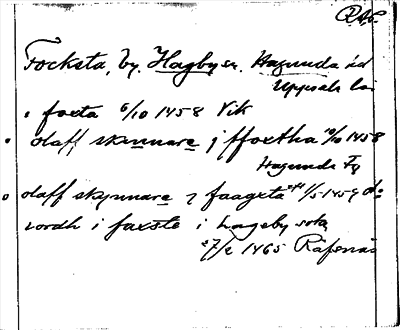 RAP.
Focksta, by. Hagby sn. Hagunda hd
Uppsala län
i foxta 6/10 1458 Vik
olaff skynnare j ffoxtha 10/10 1458
Hagunda
olaff skynnare j faagxta 1/5 1459
i faxste i Hageby sokn
27/2 1465 Räfsnäs